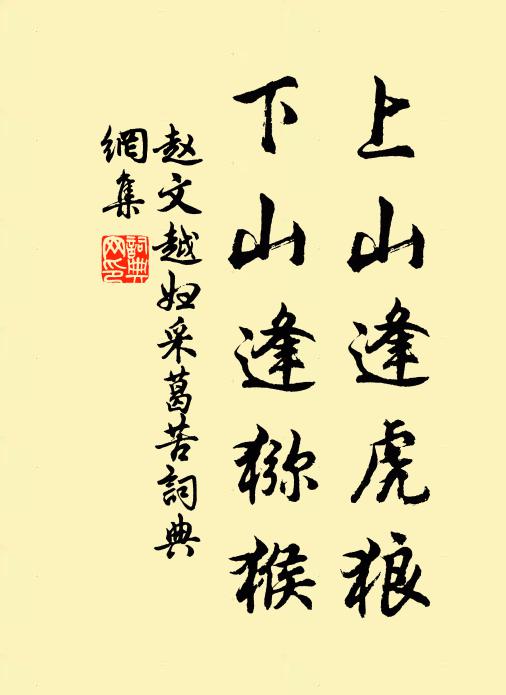 上山逢虎狼
下山逢猕猴
赵文越妇采葛苦詞典
網集
詞典網印